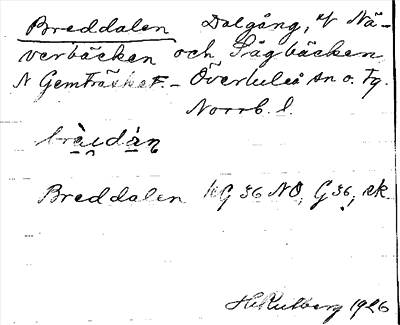 Breddalen Dalgång, v Nä-
verbäcken och Sågbäcken
N Gemträsket. - Överluleå sn o. Tg.
Norrb. l.
Breddalen KG 36 NO, G 36, ek.
H Kulberg 1926